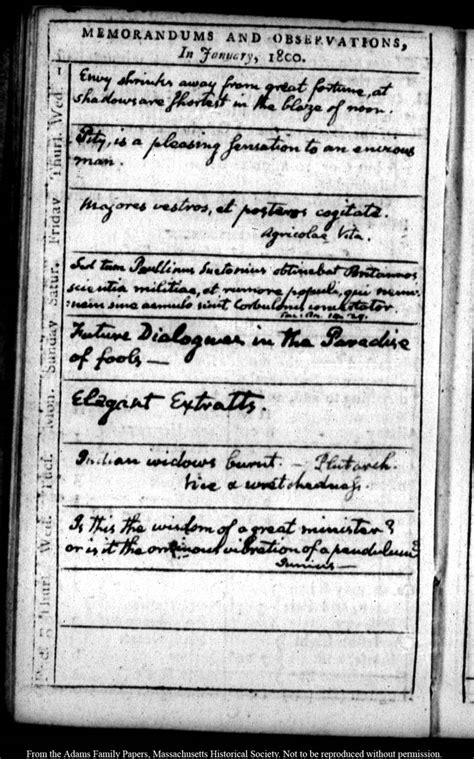 MEMORANDUMS AND OBSERVATIONS,
In January, 1800.
Envy shrinks away from great fortune, as
shadows are shortest in the blaze of noon.
Pity, is a pleasing sensation to an envious
man.
Majores vestros, et posteros cogitate.
Agricolae Vita.
Sed tum Paullinus Suetonius obtinebat Britannos
scientia militiae, et rumore populi, qui nemi-
:nem sine aemulo sinit Corbulonis concertator.
Tac. An. 14. 29.
Future Dialogues in the Paradise
of fools—
Elegant Extracts.
Indian widows burnt. — Plutarch.
Vice & wretchedness.
Is this the wisdom of a great minister?
or is it the ominous vibration of a pendulum?
Junius—
Wed.
Thurs.
Friday
Satur.
Sunday
Mon.
Tues.
Wed.
Thurs.
From the Adams Family Papers, Massachusetts Historical Society. Not to be reproduced without permission.